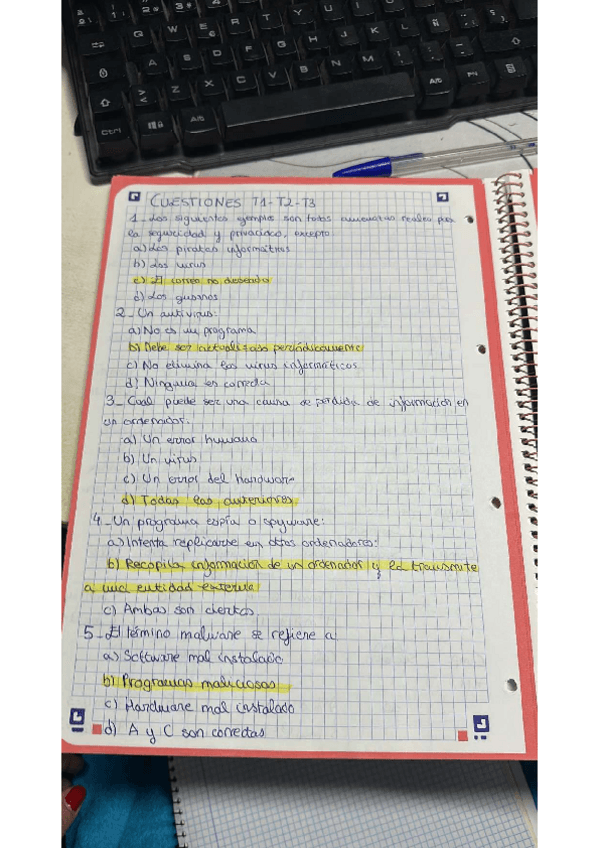 CUESTIONES T1-T2-T3
1_ Los siguientes ejemplos son todos amenazas reales por
la seguridad y privacidad, excepto:
a) Los piratas informáticos
b) Los virus
c) El correo no deseado
d) Los gusanos
2_ Un antivirus:
a) No es un programa
b) Debe ser actualizado periódicamente
c) No elimina los virus informáticos
d) Ninguna es correcta
3_ Cual puede ser una causa de perdida de información en
un ordenador.
a) Un error humano
b) Un virus
c) Un error del hardware
d) Todas las anteriores
4_ Un programa espía o spyware:
a) Intenta replicarse en otros ordenadores.
b) Recopila información de un ordenador y la transmite
a una entidad externa
c) Ambas son ciertas
5_ El término malware se refiere a
a) Software mal instalado
b) Programas maliciosos
c) Hardware mal instalado
d) A y C son correctas